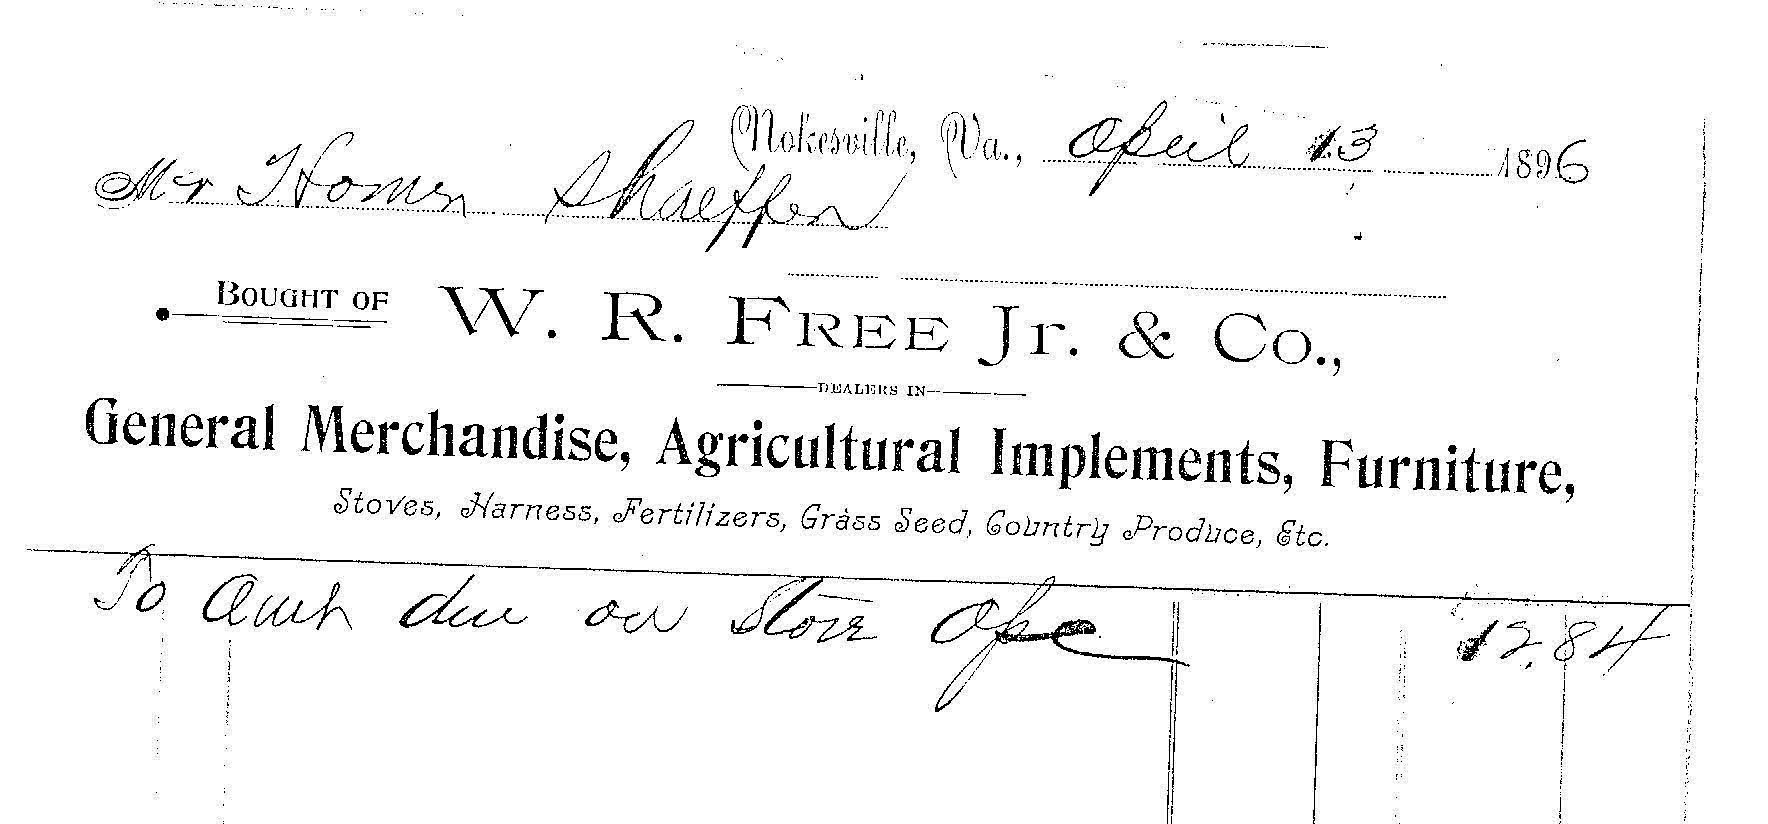 Nokesville, Va., April 13 1896
Mr Homer Shaeffer
BOUGHT OF W. R. FREE Jr. & Co.,
DEALERS IN
General Merchandise, Agricultural Implements, Furniture,
Stoves, Harness, Fertilizers, Grass Seed, Country Produce, Etc.
To Amt due on Store 12.84